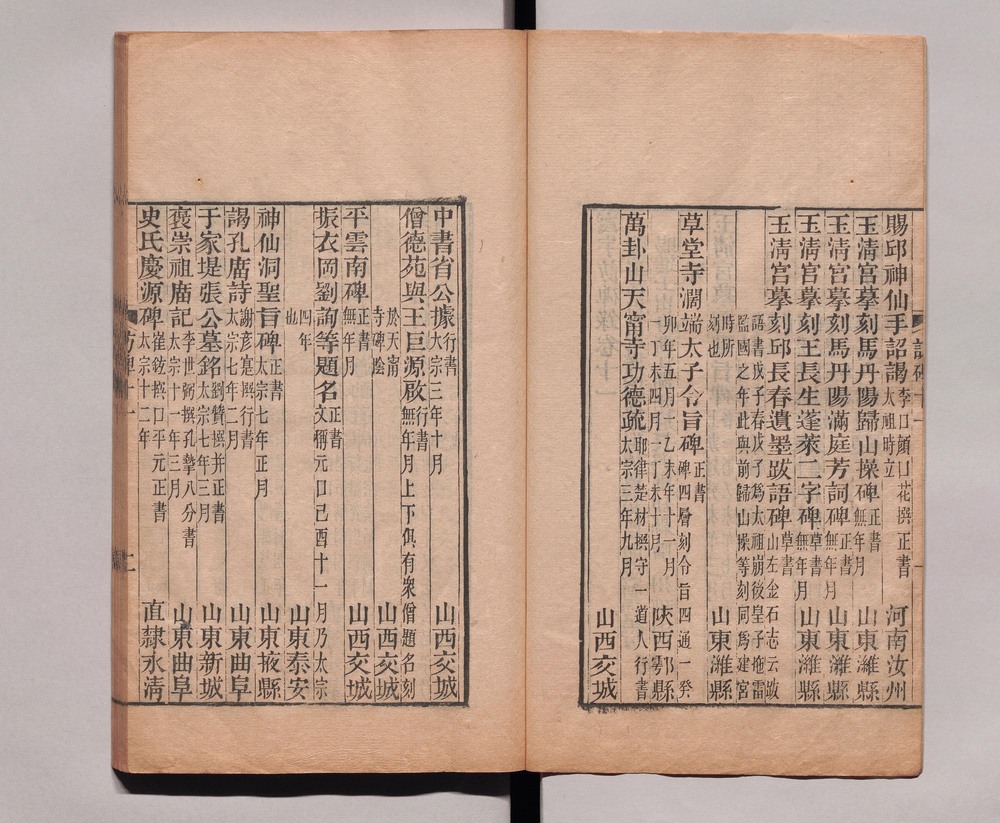 賜邱神仙手詔碣 李口頠口花撰 正書 太祖時立 河南汝州
玉清宫摹刻馬丹陽歸山操碑 正書 無年月 山東濰縣
玉清宫摹刻馬丹陽滿庭芳詞碑 正書 無年月 山東濰縣
玉清宫摹刻王長生蓬萊二字碑 草書 無年月 山東濰縣
玉清宫摹刻邱長春遺墨跋語碑 草書 山左金石志云跋
語書戊子春戊子爲太祖崩後皇子拖雷
監國之年此與前歸山操等刻同爲建宮
時所
刻也 山東濰縣
草堂寺濶端太子令旨碑 正書 碑四層刻令旨四通一癸
卯年五月一乙未年十一月
一丁未四月一丁未十月 陝西鄠縣
萬卦山天甯寺功德疏 耶律楚材撰守一道人行書 太宗三年九月
山西交城
中書省公據 行書 太宗三年十月 山西交城
僧德苑與王巨源啟 行書 無年月上下俱有衆僧題名刻
於天甯
寺碑陰 山西交城
平雲南碑 正書 無年月 山西交城
振衣岡劉詢等題名 正書 文稱元口己酉十一月乃太宗
四年
也 山東泰安
神仙洞聖旨碑 正書 太宗七年正月 山東掖縣
謁孔廟詩 謝彥寔撰行書 太宗七年二月 山東曲阜
于家堤張公墓銘 劉贊撰并正書 太宗七年三月 山東新城
褒崇祖廟記 李世弼撰孔摯八分書 太宗十一年三月 山東曲阜
史氏慶源碑 崔鉉撰口平元正書 太宗十二年 直隸永清